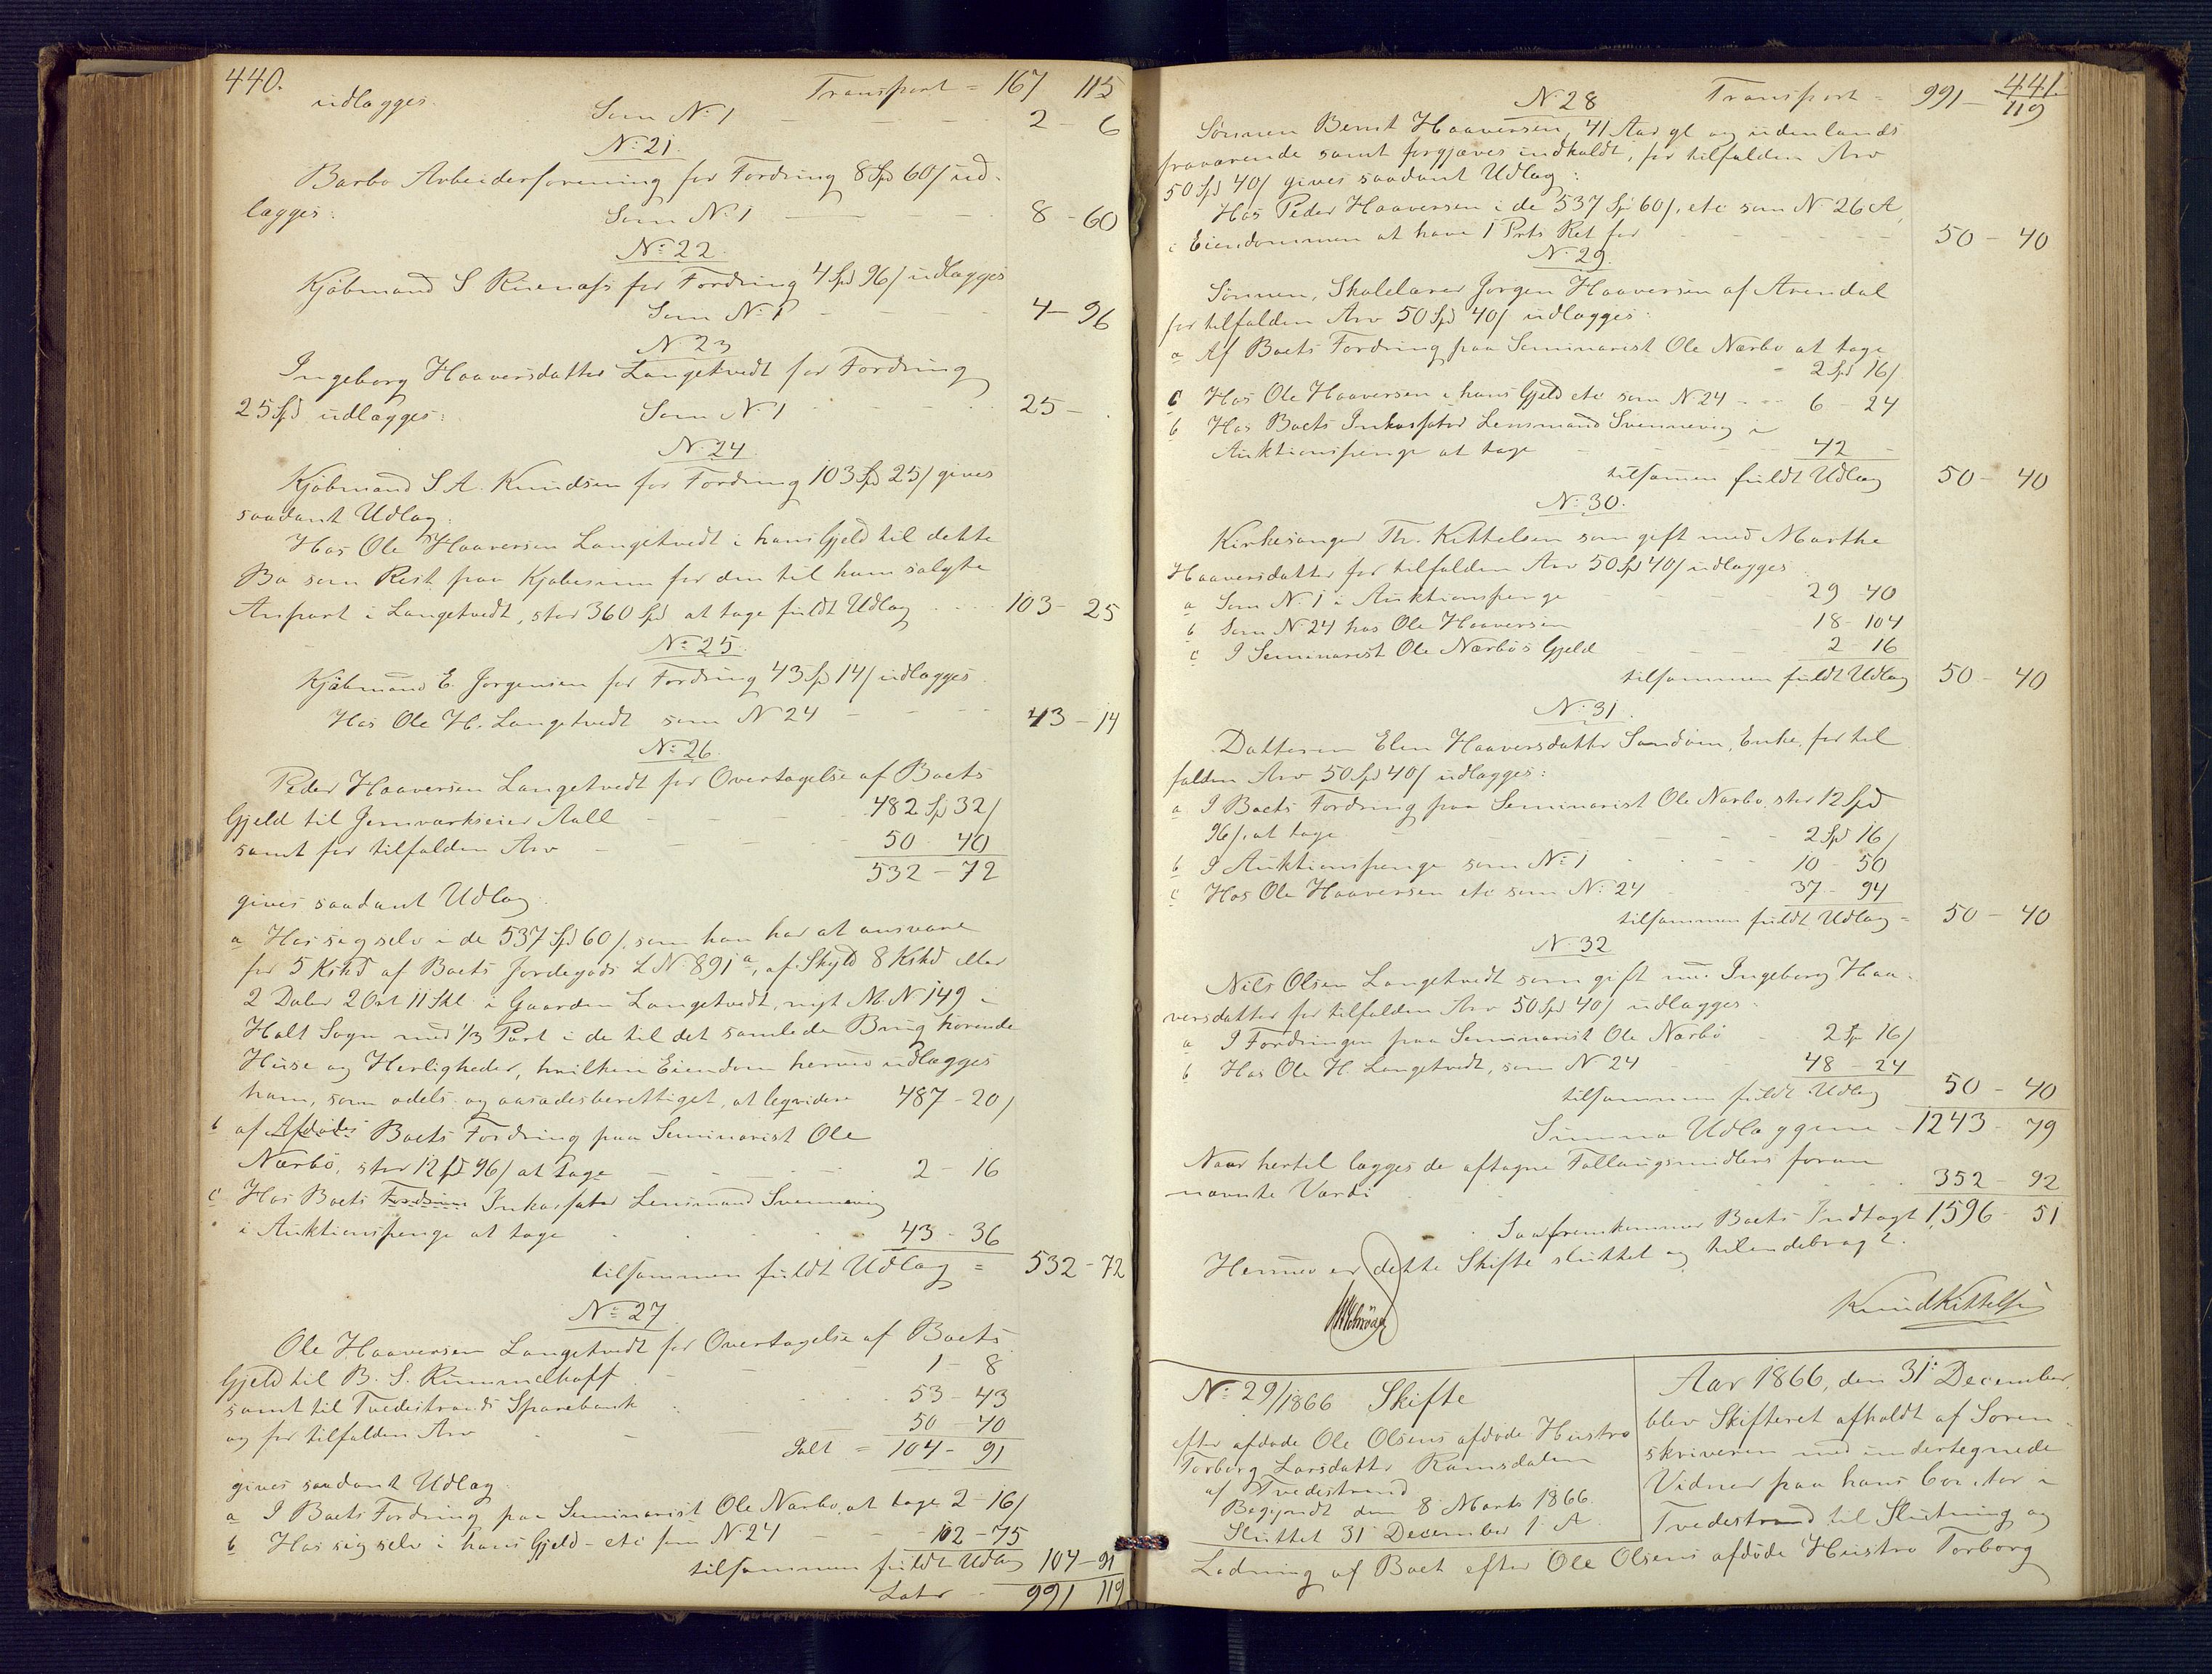 440.
Transport = 167 115
udlægges.
Som N: 1 - - - 2 - 6
N: 21.
Barbo Arbeiderforening for Fordring 8 Spd 60 / ud-
lægges: Som N: 1 - - 8 - 60
N: 22.
Kjøbmand S Ruenæss for Fordring 4 Spd 96 / udlægges
Som N: 1 - - - 4 - 96
N. 23
Ingeborg Haaversdatter Langetvedt for Fordring
25 Spd udlægges: Som N: 1 - - - 25 - .
N. 24.
Kjøbmand S. A. Knudsen for Fordring 103 Spd 25 / gives
saadant Udlæg:
Hos Ole Haaversen Langetvedt i hans Gjeld til dette
Bo som Rest paa Kjøbesum for den til ham solgte
Anpart i Langetvedt, stor 360 Spd at tage fuldt Udlæg 103 - 25
N: 25.
Kjøbmand E. Jørgensen for Fordring 43 Spd 14 / udlægges
Hos Ole H. Langetvedt som N 24 - - - 43 - 14
N: 26.
Peder Haaversen Langetvedt for Overtagelse af Boets
Gjeld til Jernværkseier Aall - - - 482 Spd 32 /
samt for tilfalden Arv - - - 50 40
532 - 72
gives saadant Udlæg:
a Hos sig selv i de 537 Spd 60 /, som han har at ansvare
for 5 Kskd af Boets Jordegods L N: 891 a, af Skyld 8 Kskd eller
2 Daler 2 Ort 11 Skl. i Gaarden Langetvedt, nyt M. N 149 i
Holt Sogn med 1/3 Part i de til det samlede Brug hørende
Huse og Herligheder, hvilken Eiendom herved udlægges
ham, som odels- og aasædesberettiget, at leqvidere 487 - 20 /
b af Afdødes Boets Fordring paa Seminarist Ole
Nærbø, stor 12 Spd 96 / at tage - - - 2 - 16
c Hos Boets Fordring Inkassator Lensmand Svennevig
i Auktionspenge at tage . . . 43 - 36
tilsammen fuldt Udlæg = 532 - 72
N: 27.
Ole Haaversen Langetvedt for Overtagelse af Boets
Gjeld til B. S. Rummelhoff - - - 1 - 8
samt til Tvedestrands Sparebank . . . 53 - 43
og for tilfalden Arv - - - 50 - 40
Ialt = 104 - 91
gives saadant Udlæg
a I Boets Fordring paa Seminarist Ole Nærbø, at tage 2 - 16 /
b Hos sig selv i hans Gjeld - etc som N. 24 - - 102 - 75
tilsammen fuldt Udlæg 104 - 91
Later - 991 119
441.
N: 28 Transport = 991 - 119
Sønnen Bernt Haaversen, 41 Aar gl og udenlands
fraværende samt forgjæves indkaldt, for tilfalden Arv
50 Spd 40 / gives saadant Udlæg:
Hos Peder Haaversen i de 537 Spd 60 /, etc som N: 26 A,
i Eiendommen at have 1 Prts Ret for - - - 50 - 40
N: 29.
Sønnen, Skolelærer Jørgen Haaversen af Arendal
for tilfalden Arv 50 Spd 40 / udlægges:
a Af Boets Fordring paa Seminarist Ole Nærbø at tage
- 2 Spd 16 /
c Hos Ole Haaversen i hans Gjeld etc som N 24 - - 6 - 24
b Hos Boets Inkassator Lensmand Svennevig i
Auktionspenge at tage - - 42 -
tilsamen fuldt Udlæg 50 - 40
N: 30.
Kirkesanger Th. Kittelsen som gift med Marthe
Haaversdatter for tilfalden Arv 50 Spd 40 / udlægges
a Som N: 1 i Auktionspenge - - - 29 40
b Som N 24 hos Ole Haaversen - - - 18 - 104
c I Seminarist Ole Nærbøs Gjeld - - - 2 - 16
tilsammen fuldt Udlæg 50 - 40
N. 31.
Datteren Elen Haaversdatter Sandøen, Enke, for til
falden Arv 50 Spd 40 / udlægges:
a I Boets Fordring paa Seminarist Ole Nærbø, stor 12 Spd
96 /. at tage - - - 2 Spd 16 /
b I Auktionspenge som N: 1 - - - 10 - 50
c Hos Ole Haaversen etc som N: 24 - - 37 - 94
tilsammen fuldt Udlæg = 50 - 40
N. 32
Nils Olsen Langetvedt som gift med Ingeborg Haa-
versdatter for tilfalden Arv 50 Spd 40 / udlægges:
a I Fordringen paa Seminarist Ole Nærbø - 2 Sp 16 /
b Hos Ole H. Langetvedt, som N 24 - - 48 - 24
tilsammen fuldt Udlæg 50 - 40
Summa Udlæggene - 1243 - 79
Naar hertil lægges de aftagne Fallangsmidlers foran
nævnte Værdi . . . 352 - 92
Saa fremkommer Boets Indtægt 1596 - 51
Hermed er dette Skifte sluttet og tilendebragt.
Knud Kittelsen
N: 29/1866 Skifte
efter afdøde Ole Olsens afdøde Hustro
Torborg Larsdatter Ramsdalen
af Tvedestrand
Begyndt den 8 Marts 1866.
Sluttet 31 December s. A.
Aar 1866, den 31: December,
blev Skifteret afholdt af Soren-
skriveren med undertegnede
Vidner paa hans Contor i
Tvedestrand til Slutning og
Lodning af Boet efter Ole Olsens afdøde Hustro Torborg